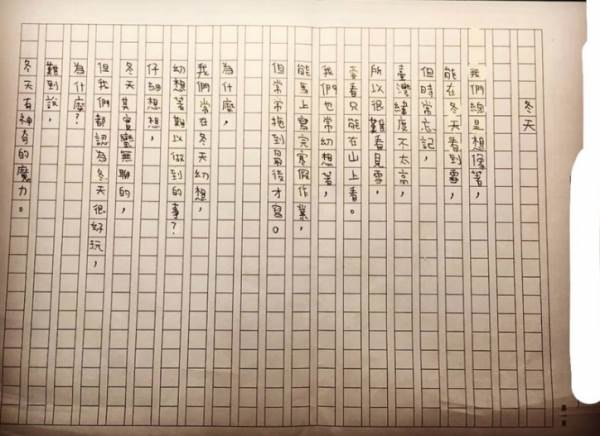 冬天
我們總是想像著，
能在冬天看到雪，
但時常忘記，
臺灣緯度不太高，
所以很難看見雪，
要看只能在山上看。
我們也常幻想著，
能馬上寫完寒假作業，
但常常拖到最後才寫。
為什麼，
我們常在冬天幻想，
幻想著難以做到的事？
仔細想想，
冬天其實蠻無聊的，
但我們都認為冬天很好玩，
為什麼？
難到說，
冬天有神奇的魔力。